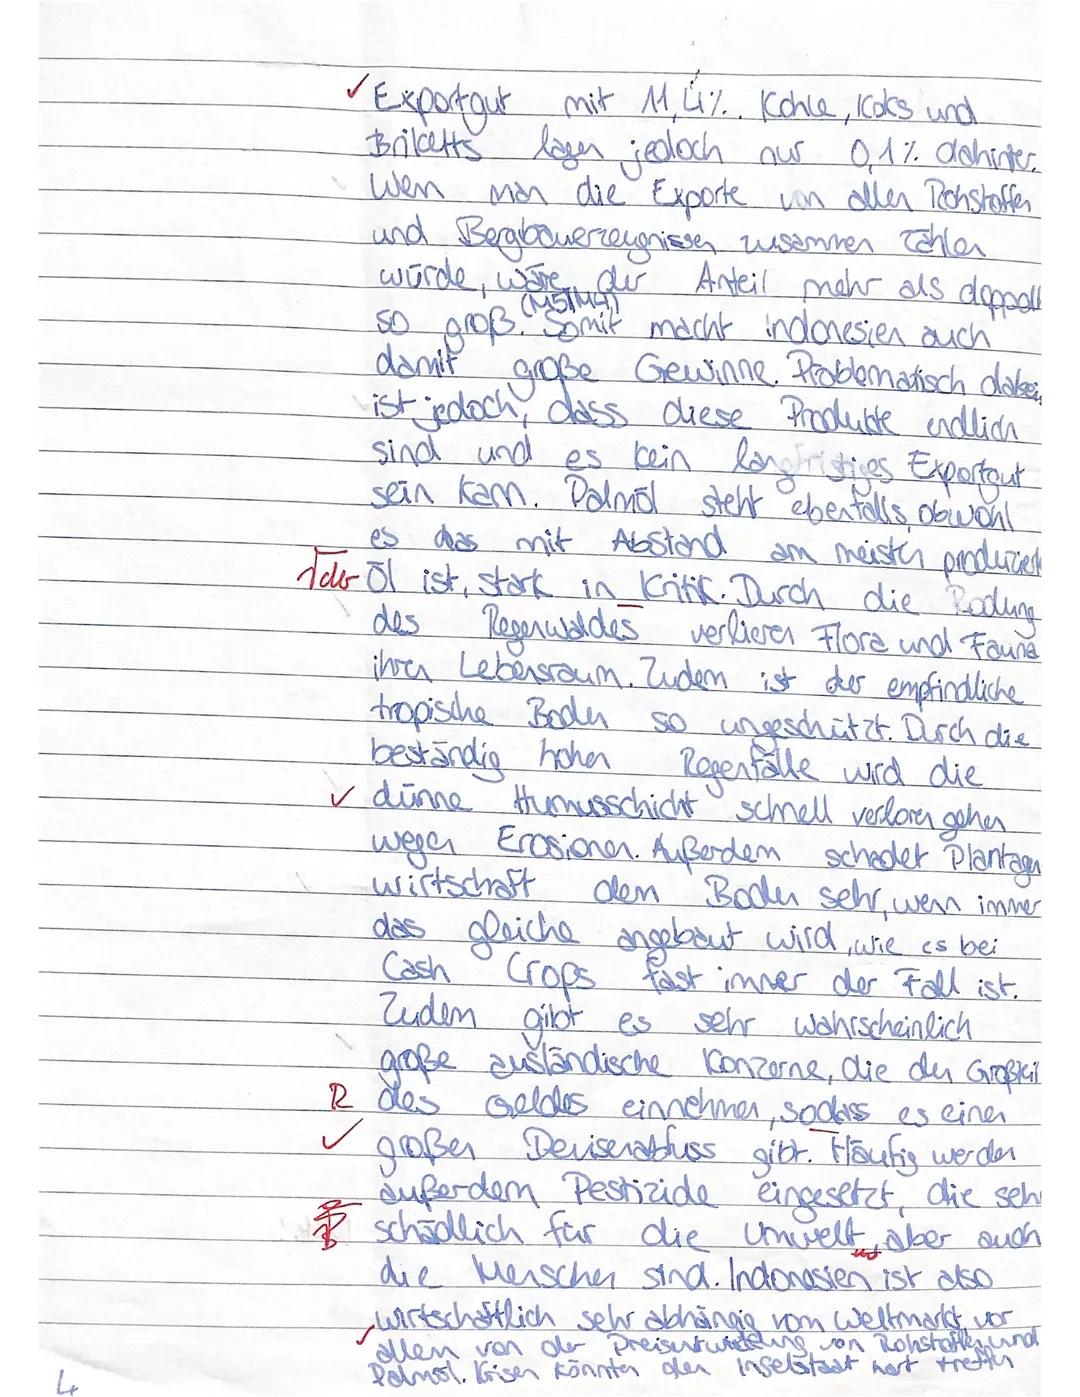 ✓ Exportgut mit 11,4%. Kohle, Koks und
Briketts lagen jedoch nur 0,1% dahinter.
Wenn man die Exporte von allen Rohstoffen
und Bergbauerzeugnissen zusammen zählen
würde, wäre der Anteil mehr als doppelt
so groß. (M5/M4) Somit macht Indonesien auch
damit große Gewinne. Problematisch dabei,
ist jedoch, dass diese Produkte endlich
sind und es kein langfristiges Exportgut
sein kann. Palmöl steht ebenfalls, obwohl
es das mit Abstand am meisten produziert
Γder Öl ist, stark in Kritik. Durch die Rodung
des Regenwaldes verlieren Flora und Fauna
ihren Lebensraum. Zudem ist der empfindliche
tropische Boden so ungeschützt. Durch die
beständig hohen Regenfälle wird die
✓ dünne Humusschicht schnell verloren gehen
wegen Erosionen. Außerdem schadet Plantagen
wirtschaft dem Boden sehr, wenn immer
das gleiche angebaut wird, wie es bei
Cash Crops fast immer der Fall ist.
Zudem gibt es sehr wahrscheinlich
große ausländische Konzerne, die den Großteil
R des Geldes einnehmen, sodass es einen
✓ großen Devisenabfluss gibt. Häufig werden
außerdem Pestizide eingesetzt, die sehr
schädlich für die Umwelt, aber auch
die Menschen sind. Indonesien ist also
wirtschaftlich sehr abhängig vom Weltmarkt, vor
✓ allem von der Preisentwicklung von Rohstoffen und
Palmöl. Krisen könnten den Inselstaat hart treffen
4